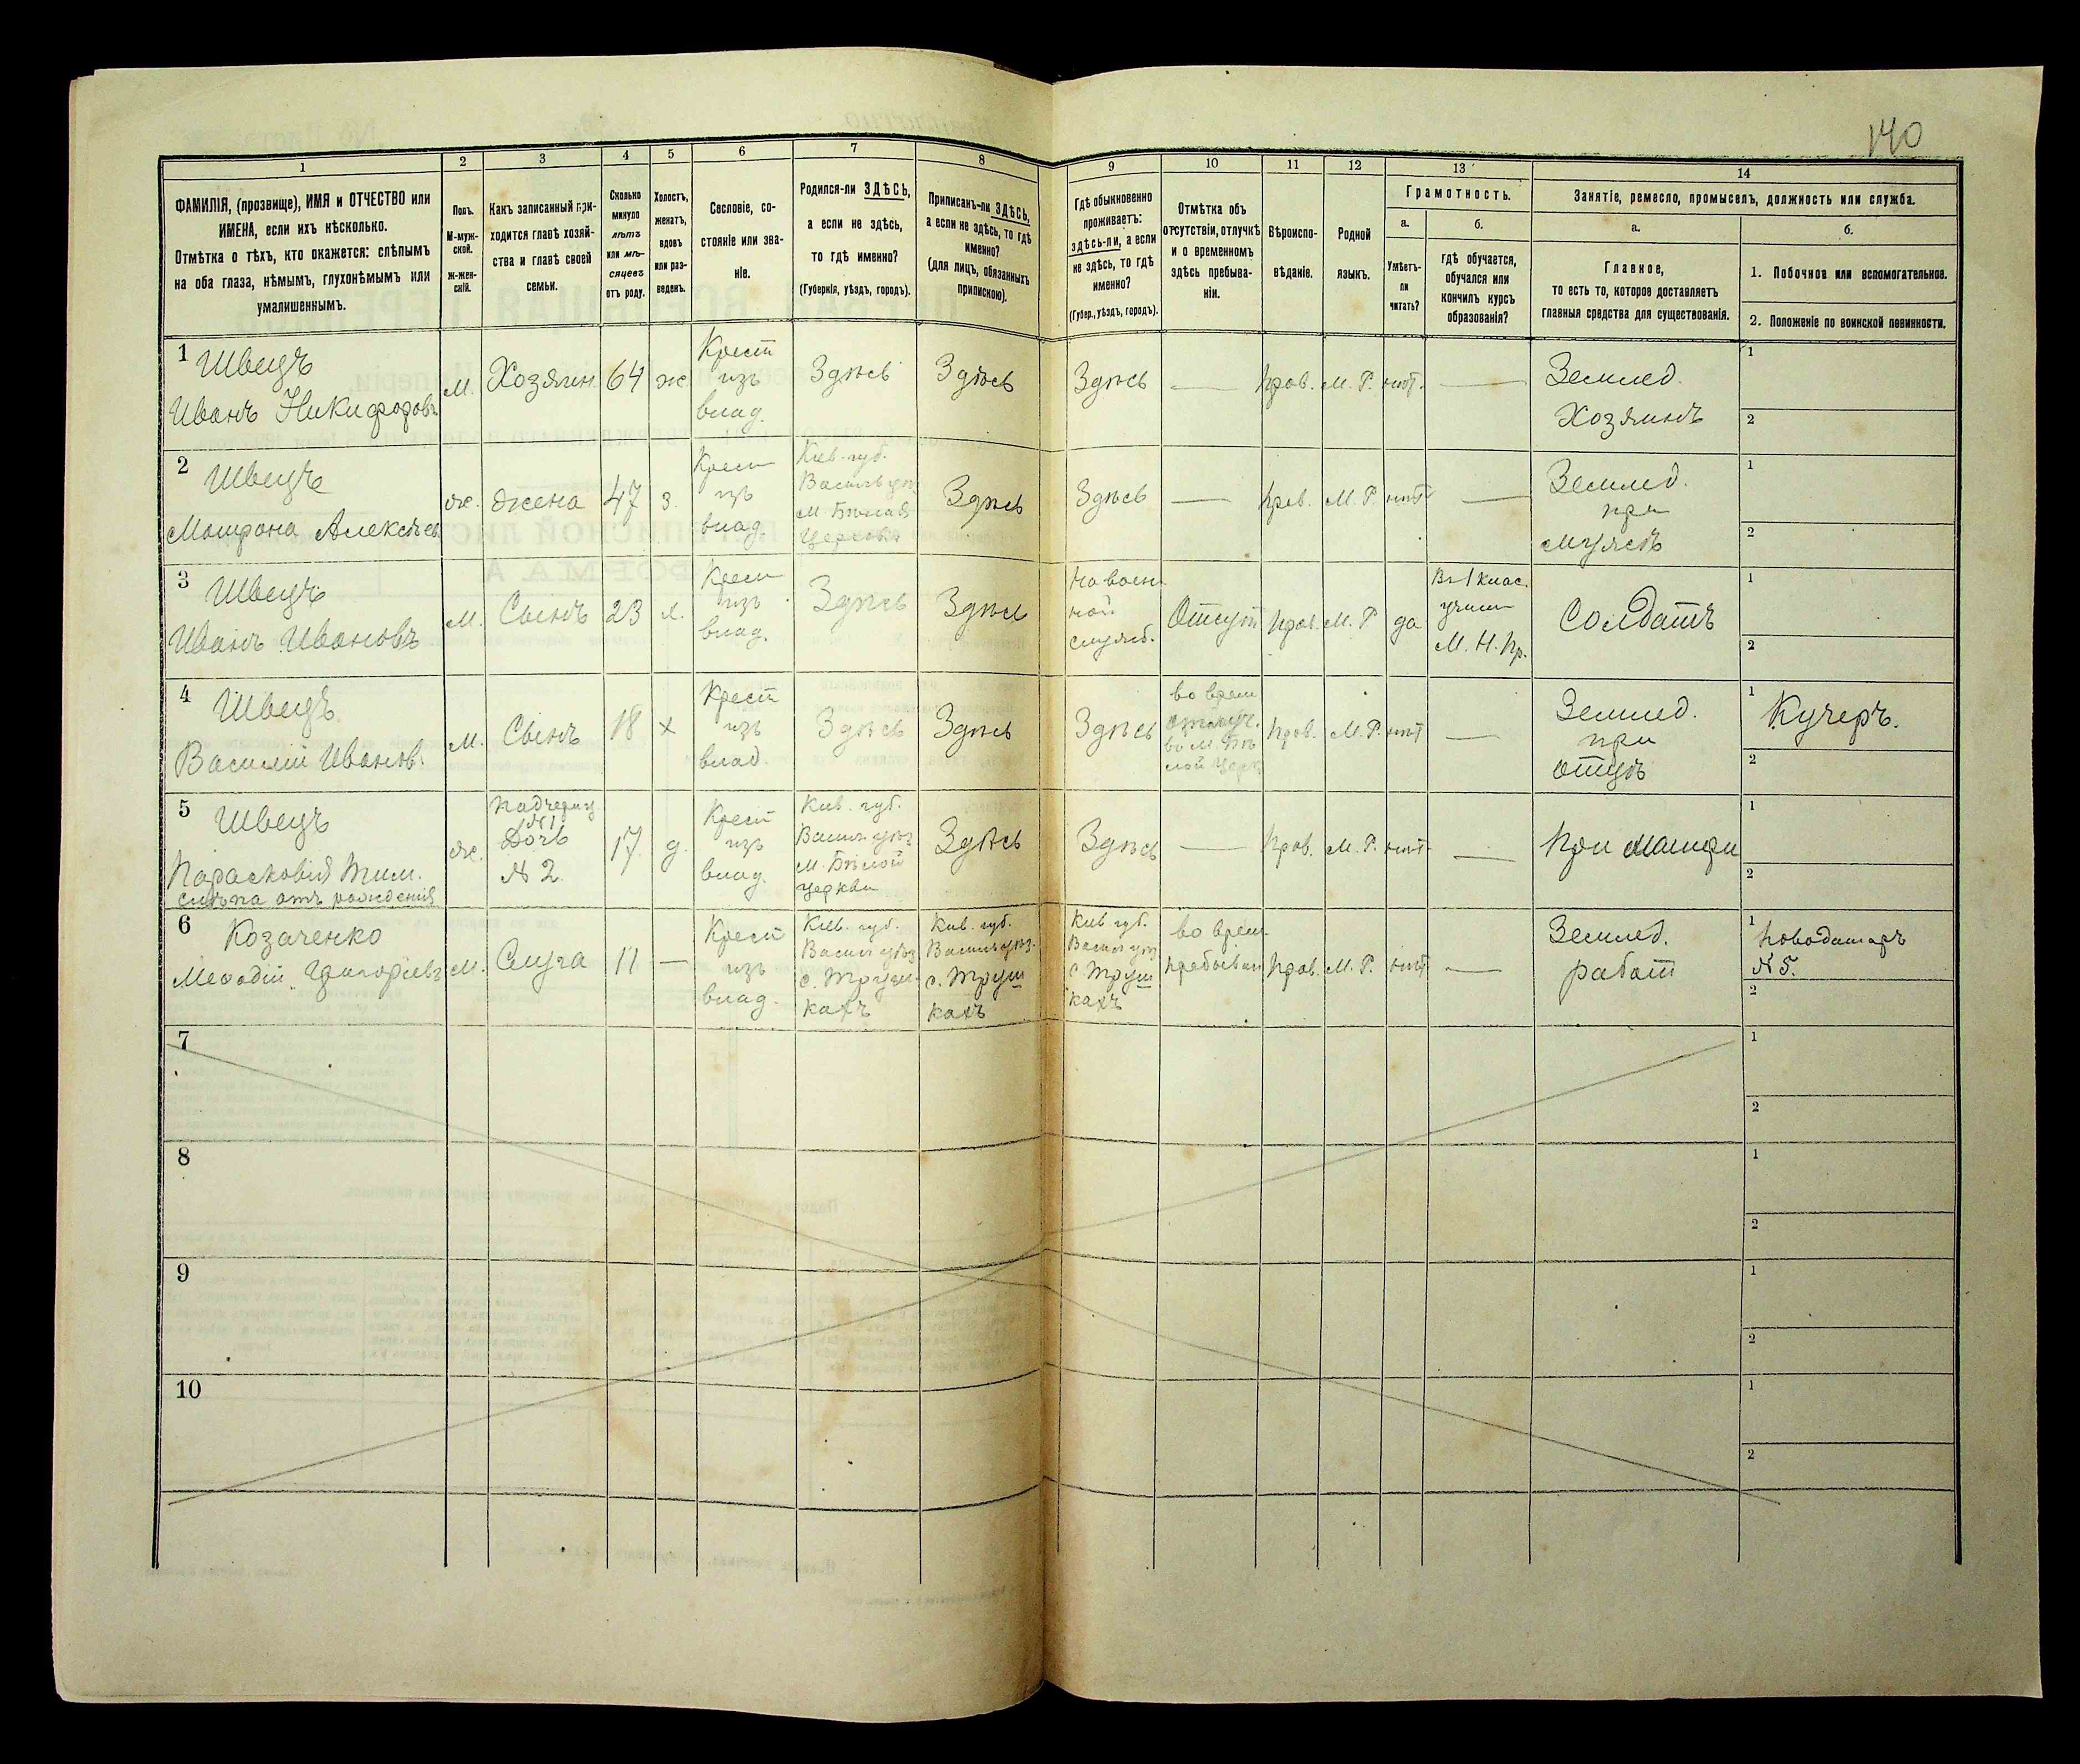 140
1
2
3
4
5
6
7
8
9
10
11
12
13
14
ФАМИЛІЯ, (прозвище), ИМЯ и ОТЧЕСТВО или
ИМЕНА, если ихъ нѣсколько.
Отмѣтка о тѣхъ, кто окажется: слѣпымъ
на оба глаза, нѣмымъ, глухонѣмымъ или
умалишеннымъ.
Полъ.
М-муж-
ской.
Ж-жен-
скій.
Какъ записанный при-
ходится главѣ хозяй-
ства и главѣ своей
семьи.
Сколько
минуло
лѣтъ
или мѣ-
сяцевъ
отъ роду.
Холостъ,
женатъ,
вдовъ
или раз-
веденъ.
Сословіе, со-
стояніе или зва-
ніе.
Родился-ли ЗДѢСЬ,
а если не здѣсь,
то гдѣ именно?
(Губернія, уѣздъ, городъ).
Приписанъ-ли ЗДѢСЬ,
а если не здѣсь, то гдѣ
именно?
(для лицъ, обязанныхъ
припискою).
Гдѣ обыкновенно
проживаетъ:
здѣсь-ли, а если
не здѣсь, то гдѣ
именно?
(Губер., уѣздъ, городъ).
Отмѣтка объ
отсутствіи, отлучкѣ
и о временномъ
здѣсь пребыва-
ніи.
Вѣроиспо-
вѣданіе.
Родной
языкъ.
Грамотность.
а.
Умѣетъ-
ли
читать?
б.
гдѣ обучается,
обучался или
кончилъ курсъ
образованія?
Занятіе, ремесло, промыселъ, должность или служба.
а.
Главное,
то есть то, которое доставляетъ
главныя средства для существованія.
б.
1. Побочное или вспомогательное.
2. Положеніе по воинской повинности.
1 Швецъ
Иванъ Никифоровъ
м.
Хозяин
64
ж
Крест
изъ
влад.
Здѣсь
Здѣсь
Здѣсь
—
Прав.
М. Р.
нѣт.
—
Землед.
Хозяинъ
1
2
2 Швецъ
Матрона Алексѣев
ж.
жена
47
з.
Крест
изъ
влад.
Кіев. губ.
Васильк уѣз
м. Бѣлая
Церковь
Здѣсь
Здѣсь
—
Прав.
М. Р.
нѣт
—
Землед.
при
мужѣ
1
2
3 Швецъ
Иванъ Ивановъ
м.
Сынъ
23
х.
Крест
изъ
влад.
Здѣсь
Здѣсь
На воен
ной
служб.
Отсут
Прав.
М. Р
да
Въ 1 клас.
учил
М. Н. Пр.
Солдатъ
1
2
4 Швецъ
Василій Иванов.
м.
Сынъ
18
х
Крест
изъ
влад
Здѣсь
Здѣсь
Здѣсь
во врем
отлуч.
въ м. Бѣ
лой Церк
Прав.
М. Р.
нѣт
—
Землед.
при
отцѣ
1 Кучеръ.
2
5 Швецъ
Парасковія Тим.
слѣпа отъ рожденія
ж.
Падчериц
№ 1
Дочь
№ 2
17
д.
Крест
изъ
влад.
Кіев. губ.
Васильк уѣз
м. Бѣлой
Церкви
Здѣсь
Здѣсь
—
Прав.
М. Р.
нѣт
—
При матери
1
2
6 Козаченко
Меѳодій Григорьевъ
м.
Слуга
11
—
Крест
изъ
влад.
Кіев. губ.
Васильк уѣз
с. Труш-
кахъ
Кіев. губ.
Васильк уѣз.
с. Труш
кахъ
Кіев губ.
Васильк уѣз
с. Труш
кахъ
во врем.
пребыван
Прав.
М. Р.
нѣт
—
Землед.
работ
1 Поводатарь
№ 5.
2
7
1
2
8
1
2
9
1
2
10
1
2